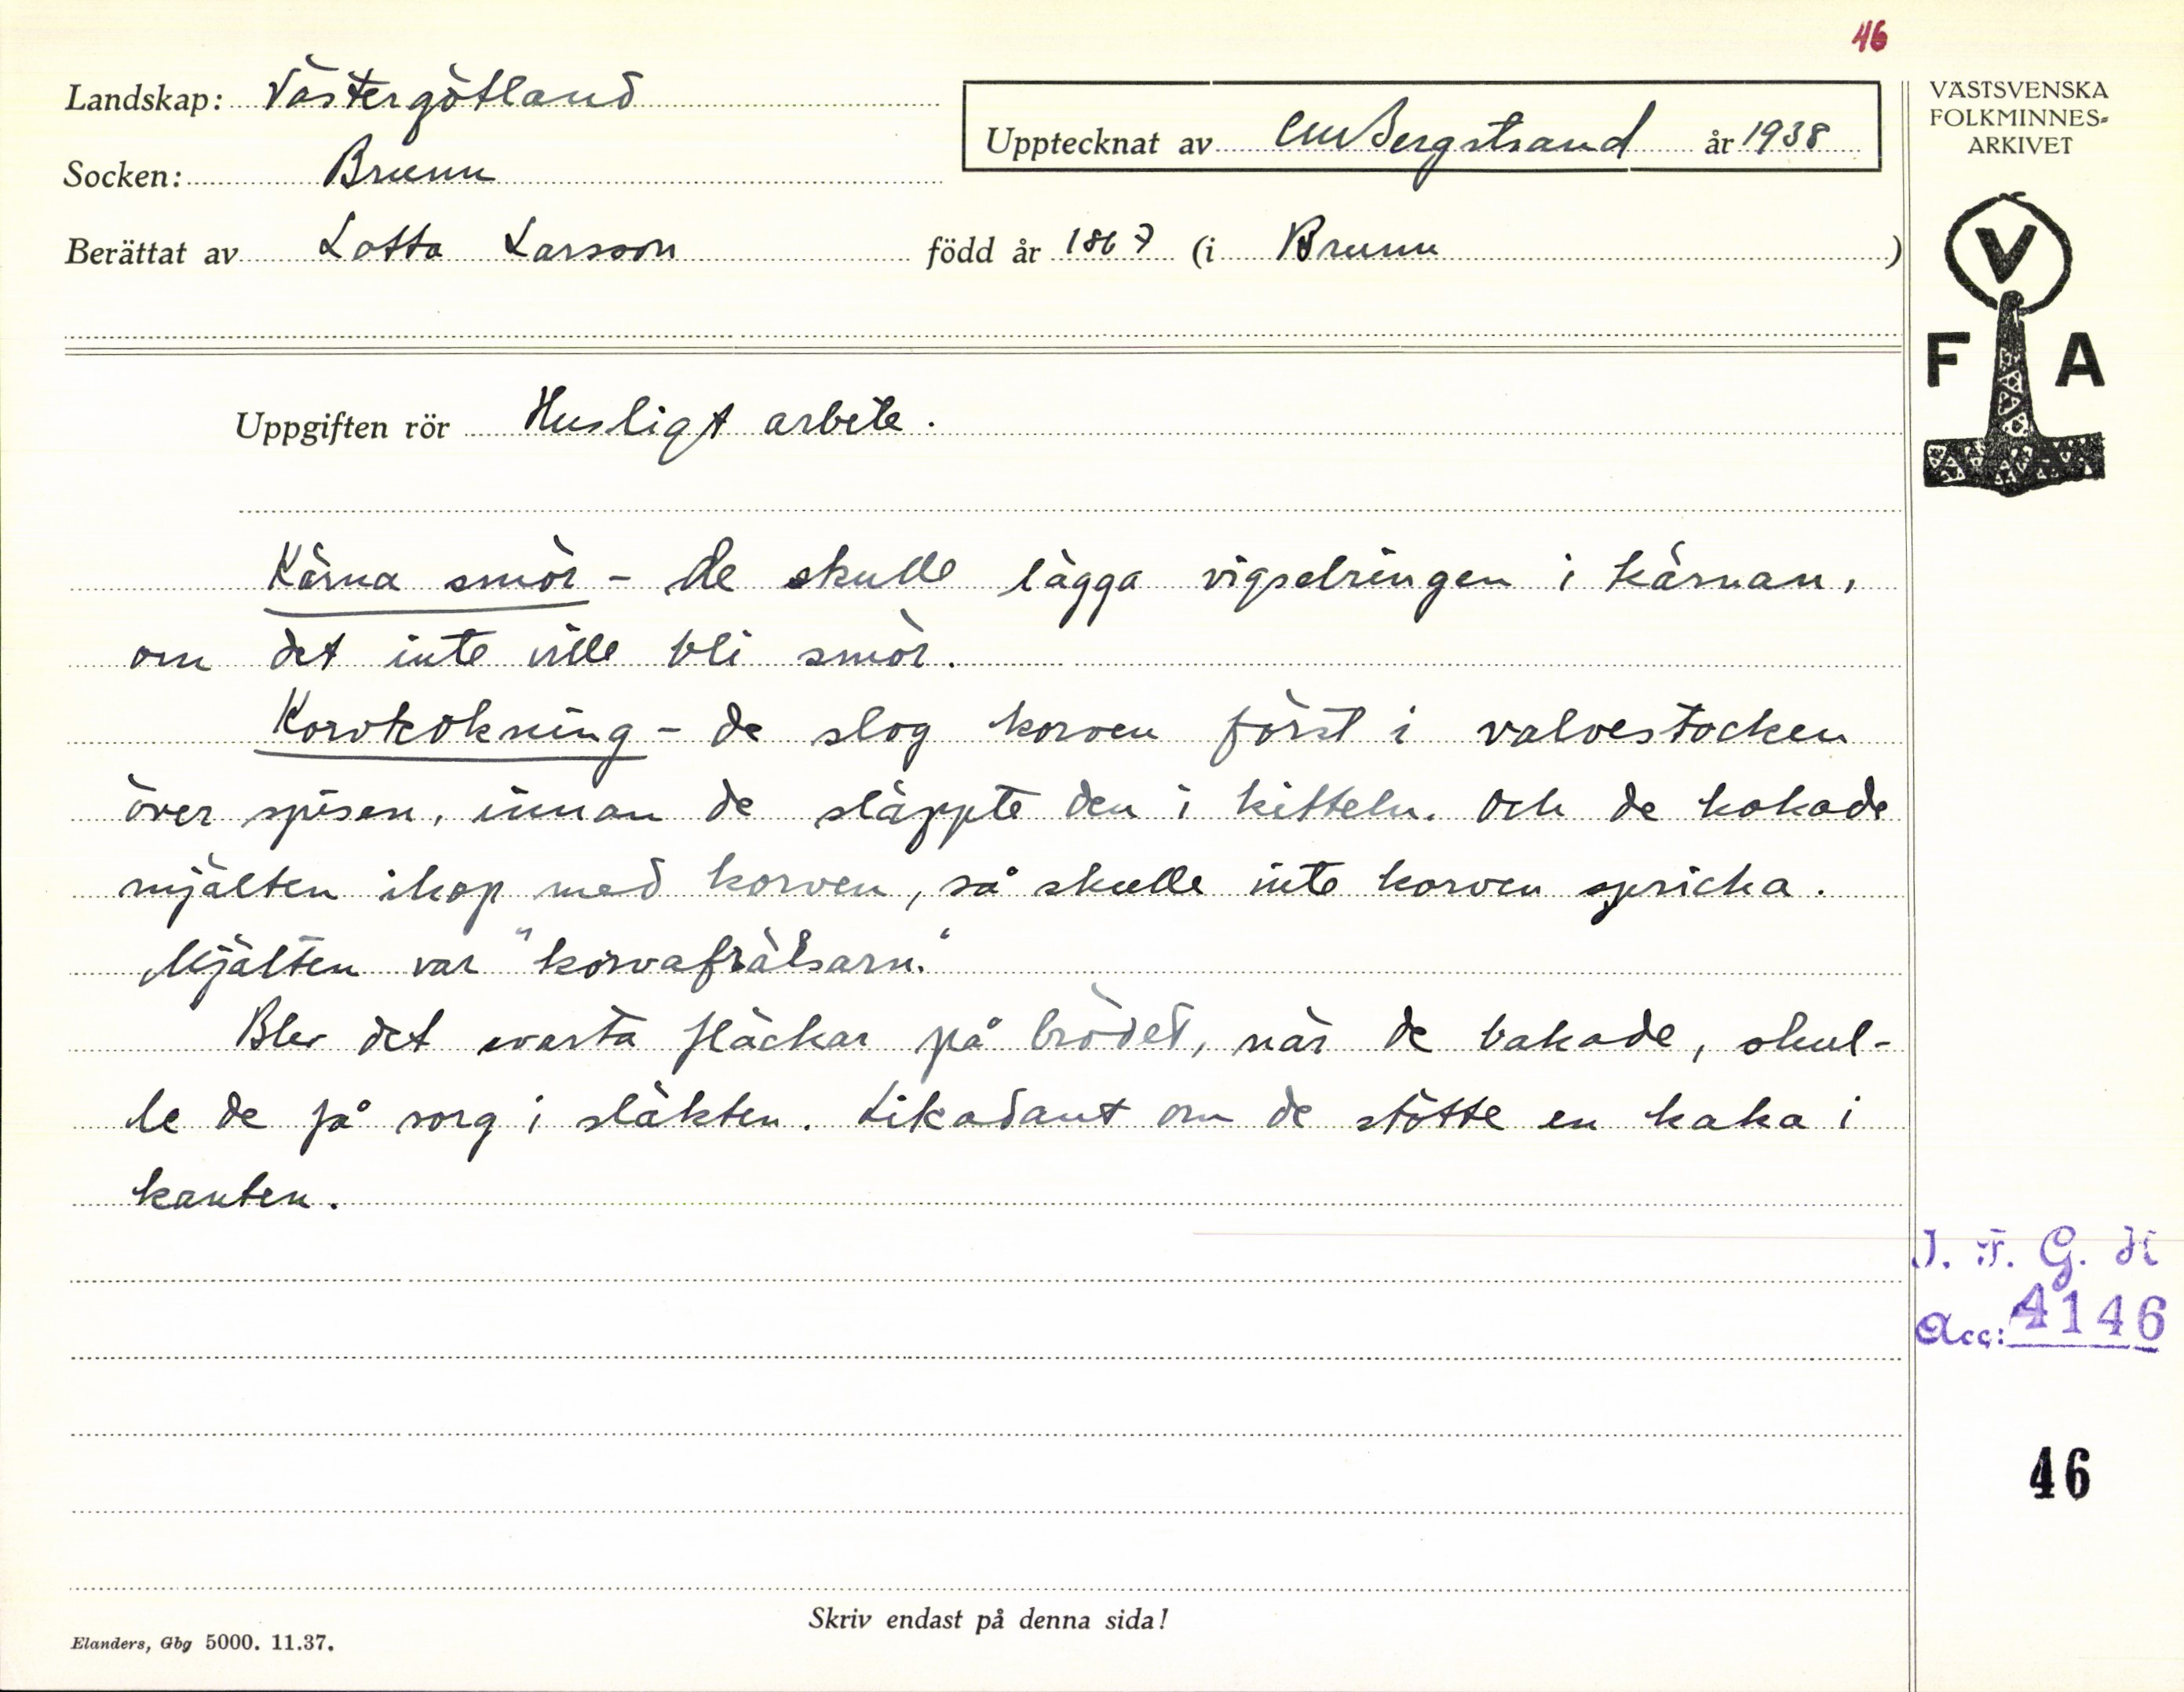 46
Landskap: Västergötland
Upptecknat av CMBergstrand år 1938
Socken: Brunn
Berättat av Lotta Larsson född år 1867 (i Brunn )
VÄSTSVENSKA
FOLKMINNES-
ARKIVET
V
F A
Uppgiften rör Husligt arbete.
Kärna smör - de skulle lägga vigselringen i kärnan,
om det inte ville bli smör.
Korvkokning - de slog korven först i valvestocken
över spisen, innan de släppte den i kitteln. Och de kokade
mjälten ihop med korven, så skulle inte korven spricka.
Mjälten var "korvafrälsarn."
Blev det svarta fläckar på brödet, när de bakade, skul-
le de få sorg i släkten. Likadant om de stötte en kaka i
kanten.
Acc: 4146
46
Skriv endast på denna sida!
Elanders, Gbg 5000. 11.37.